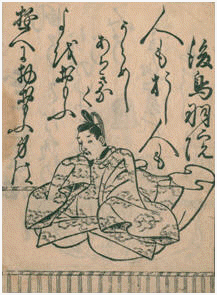 後鳥羽院
人もおし人も
うらめし
あぢきなく
よをおもふ
ゆへに物おもふ身は